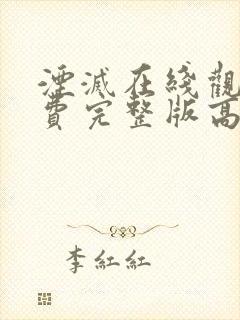 湮滅在綫觀
費完整版高
李紅紅